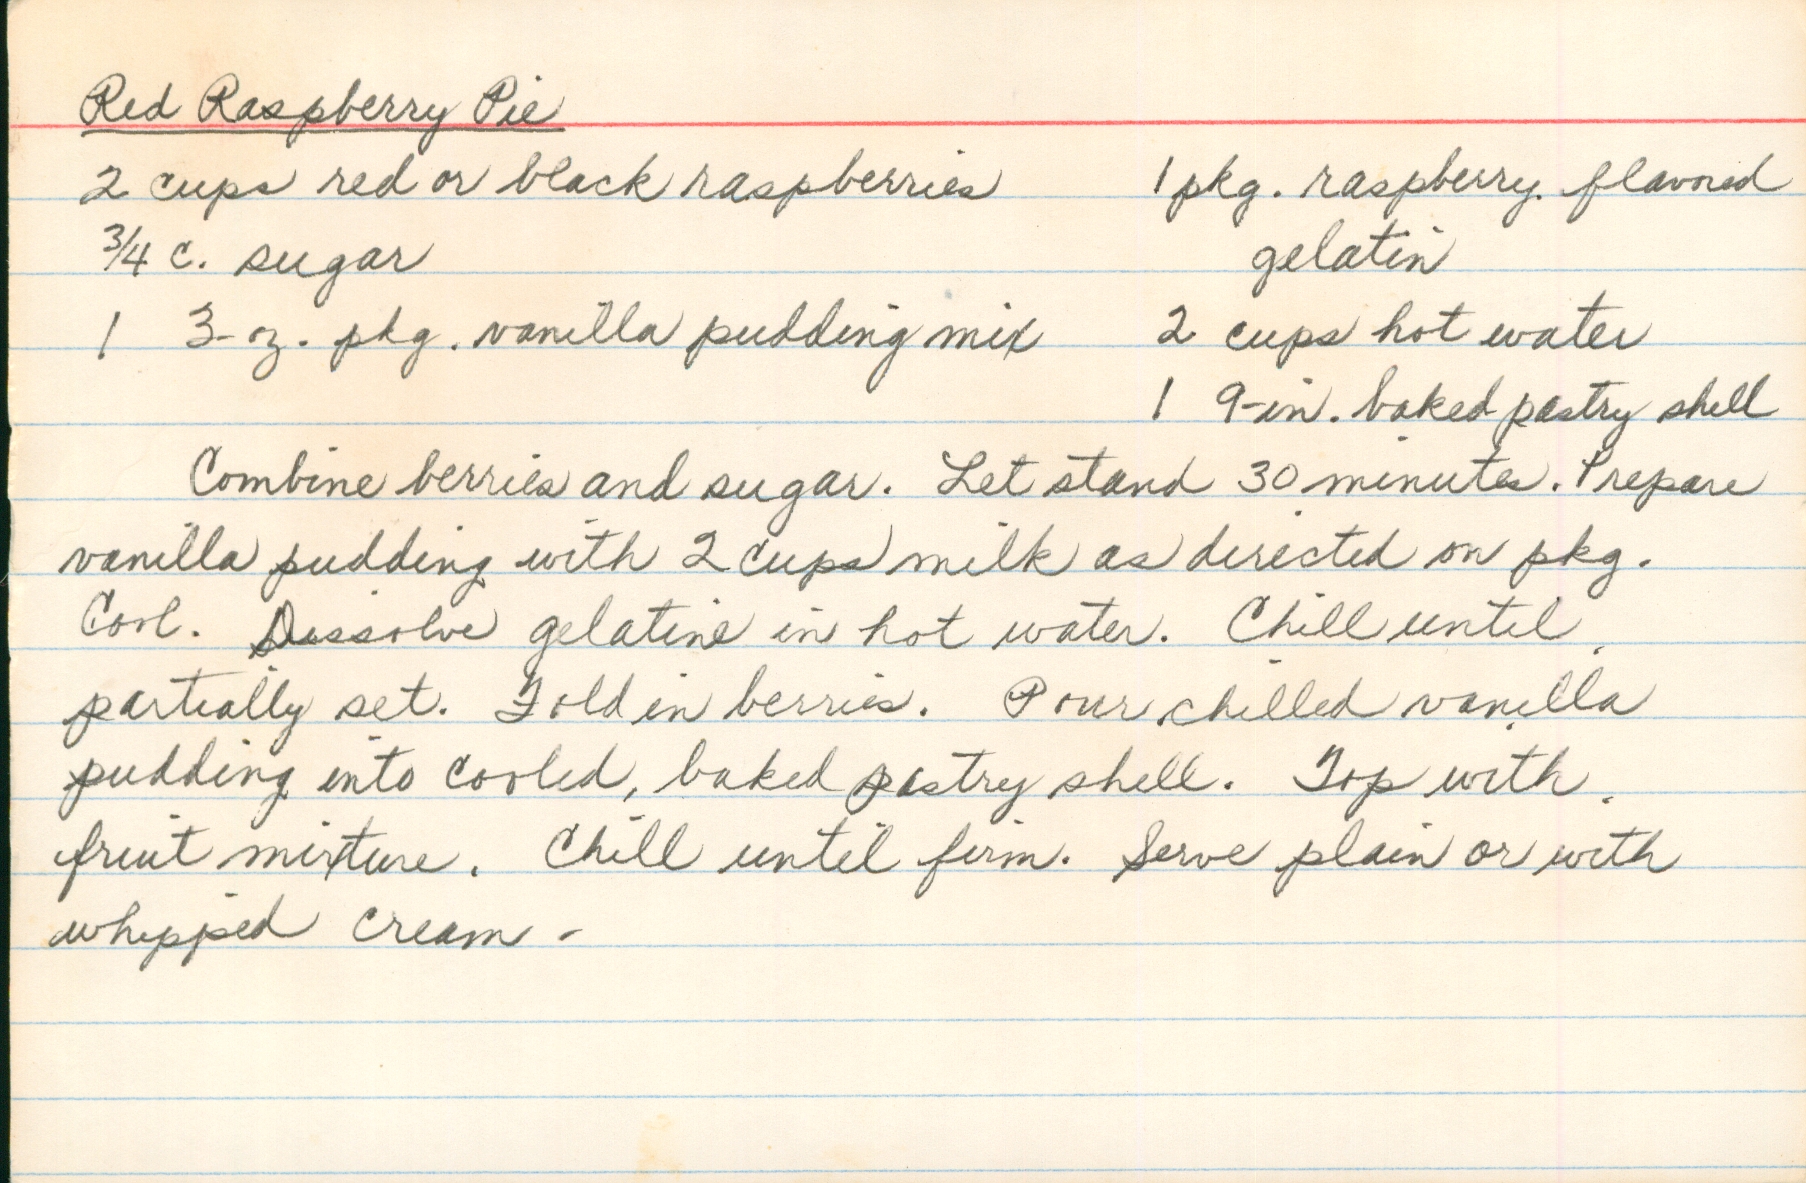 Red Raspberry Pie
2 cups red or black raspberries
3/4 c. sugar
1 3-oz. pkg. vanilla pudding mix
1 pkg. raspberry flavored
gelatin
2 cups hot water
1 9-in. baked pastry shell
Combine berries and sugar. Let stand 30 minutes. Prepare
vanilla pudding with 2 cups milk as directed on pkg.
Cool. Dissolve gelatine in hot water. Chill until
partially set. Fold in berries. Pour chilled vanilla
pudding into cooled, baked pastry shell. Top with
fruit mixture. Chill until firm. Serve plain or with
whipped cream -